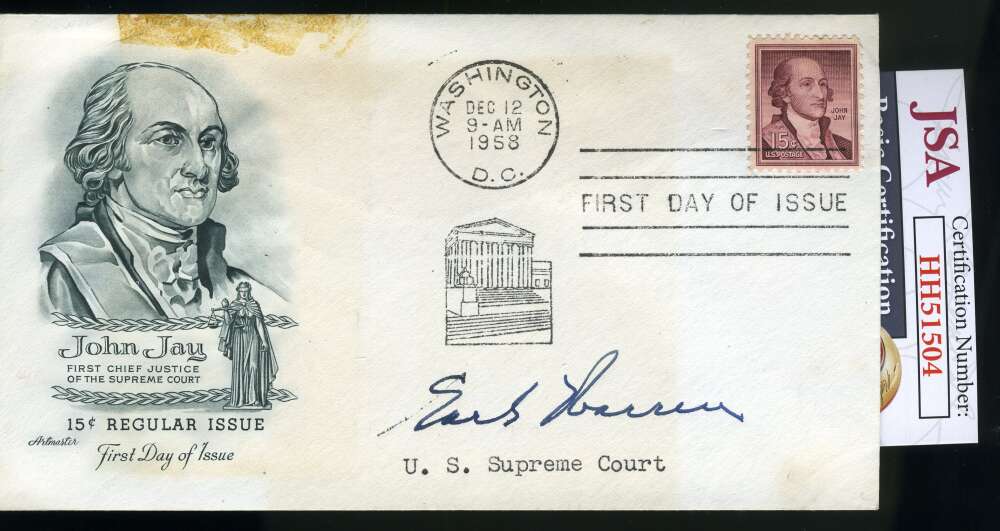 WASHINGTON
DEC 12
9-AM
1958
D.C.
JOHN
JAY
15¢
U.S. POSTAGE
FIRST DAY OF ISSUE
John Jay
FIRST CHIEF JUSTICE
OF THE SUPREME COURT
15¢ REGULAR ISSUE
Artmaster
First Day of Issue
Earl Warren
U. S. Supreme Court
JSA
Basic Certification
Certification Number:
HH51504